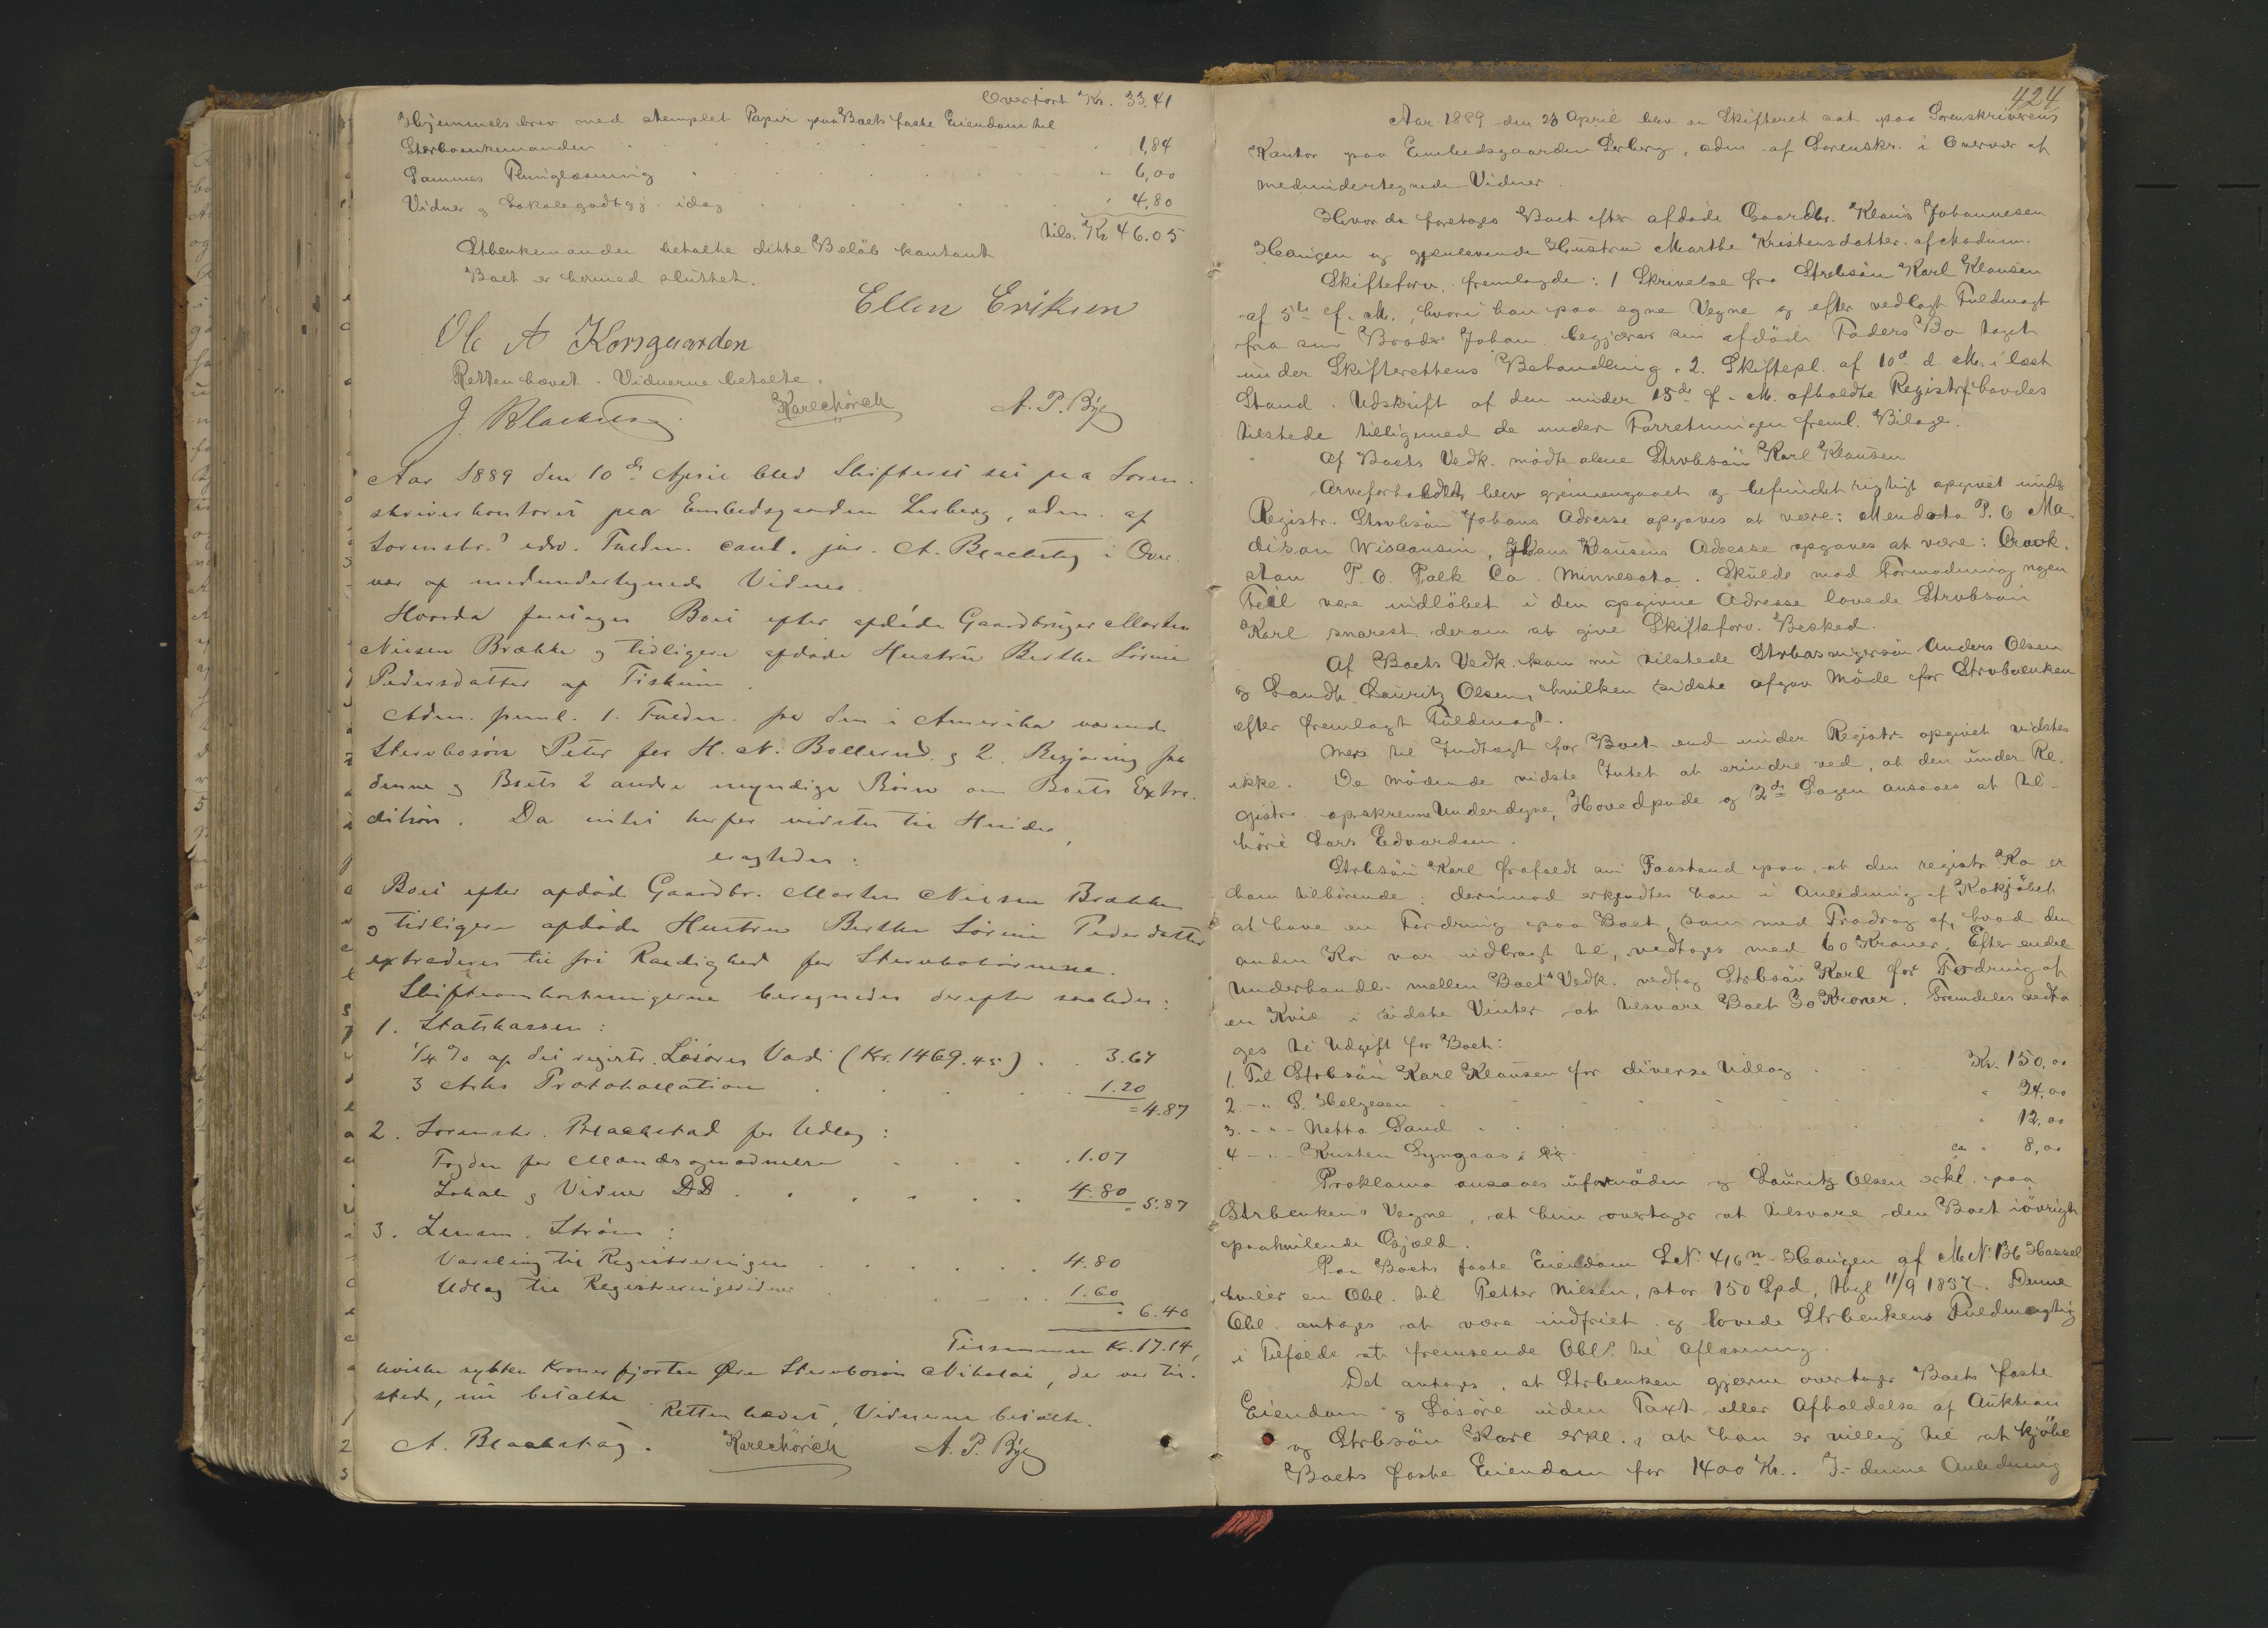 Overført Kr. 33.41
Hjemmelsbrev med stemplet Papir paa Boets faste Eiendom til
Sterboenkemanden 1,84
Sammes Thinglæsning 6,00
Vidner og Lokalegodtgj. idag 4,80
tils. Kr 46.05
Stbenkemanden betalte dette Beløb kontant
Boet er hermed sluttet.
Ellen Eriksen
Ole A Korsgaarden
Retten hævet. Vidnerne betalte.
A. P. Bye
Aar 1889 den 10de April blev Skifteret sat paa Soren-
skriverkontoret paa Embedsgaarden Lerberg, adm. af
Sorenskr.s edsv. Fuldm. cand. jur. A. Blackstad i Over-
vær af medundertegnede Vidner.
Hvorda foretages Boet efter afdøde Gaardbruger Morten
Nilsen Brække og tidligere afdøde Hustru Berthe Sørine
Pedersdatter af Fiskum.
Adm. freml. 1. Fuldm. fra den i Amerika værende
Stervbosøn Peter for H. N. Bollerud og 2. Begjæring fra
denne og Boets 2 andre myndige Børn om Boets Extra-
dition. Da intet herfor vidstes til Hinder,
eragtedes:
Boet efter afdød Gaardbr. Morten Nilsen Brække
og tidligere afdøde Hustru Berthe Sørine Pedersdatter
extraderes til fri Raadighed for Stervbobørnene.
Skifteomkostningerne beregnedes derefter saaledes:
1. Statskassen:
1/4 % af det registr. Løsøres Værdi (Kr. 1469.45) 3.67
3 Arks Protokollation 1.20
= 4.87
2. Sorenskr. Blackstad for Udlæg:
Fogden for Mandsopnævnelse 1.07
Lokale og Vidner DD 4.80
= 5.87
3. Lensm. Strøm:
Varsling til Registreringen 4.80
Udlæg til Registreringsvidner 1.60
" 6.40
Tilsammen Kr. 17.14,
hvilke sytten Kroner fjorten Øre Stervbosøn Nikolai, der var til-
stede, nu betalte.
Retten hævet, Vidnerne betalte.
A. Blackstad. A. P. Bye
424
Aar 1889 den 23 April blev en Skifteret sat paa Sorenskriverens
Kontor paa Embedsgaarden Lerberg, adm af Sorenskr. i Overvær af
medundertegnede Vidner.
Hvorda foretoges Boet efter afdøde Gaardbr. Klaus Johannesen
Haugen og gjenlevende Hustru Marthe Kristensdatter. af Modum.
Skifteforv. fremlagde: 1 Skrivelse fra Strvbsøn Karl Klausen
af 5te f. M., hvori han paa egne Vegne og efter vedlagt Fuldmagt
fra sin Broder Johan begjærer sin afdøde Faders Bo taget
under Skifterettens Behandling. 2. Skiftepl. af 10de d. M. i læst
Stand. Udskrift af den under 15de f. M. afholdte Registrf. havdes
tilstede tilligemed de under Forretningen freml. Bilage.
Af Boets Vedk. mødte alene Strvbsøn Karl Klausen
Arveforholdet blev gjennemgaaet og befundet rigtigt opgivet under
Registr. Strvbsøn Johans Adresse opgaves at være: Mendota P. O Ma-
dison Wisconsin, Hans Klausens Adresse opgaves at være: Crook-
ston P. O. Polk Co. Minnesota. Skulde mod Formodning nogen
Feil være indløbet i den opgivne Adresse lovede Strvbsøn
Karl snarest derom at give Skifteforv. Besked.
Af Boets Vedk. kom nu tilstede Strbosvigersøn Anders Olsen
og Landh. Lauritz Olsen, hvilken sidste afgav Møde for Strvboenken
efter fremlagt Fuldmagt.
Mere til Indtægt for Boet end under Registr. opgivet vidstes
ikke. De mødende vidste Intet at erindre ved, at den under Re-
gistr. opskrevne Underdyne, Hovedpude og 2de Lagen ansees at til-
høre Lars Edvardsen.
Strbsøn Karl frafaldt sin Paastand paa, at den registr Ko er
ham tilhørende; derimod erkjendtes han i Anledning af Kokjøbet
at have en Fordring paa Boet, som med Fradrag af, hvad den
anden Ko var udbragt til, vedtoges med 60 Kroner. Efter endel
Underhandl. mellem Boets Vedk. vedtog Strbsøn Karl for Fodring af
en Kvie i sidste Vinter at tilsvare Boet 30 Kroner. Fremdeles vedto-
ges til Udgift for Boet:
1. Til Strbsøn Karl Klausen for diverse Udlæg Kr. 150,00
2. - " S. Helgesen " 24,00
3. - " - Netta Sand " 12,00
4 - " - Kristen Lyngaas ca " 8,00
Proklama ansaaes ufornøden og Lauritz Olsen erkl. paa
Strbenkens Vegne, at hun overtager at tilsvare den Boet iøvrigt
paahvilende Gjæld.
Paa Boets faste Eiendom LN: 416n Haugen af MN: 136 Hassel
hviler en Obl. til Petter Nilsen, stor 150 Spd, thgl 11/9 1837. Denne
Obl. antages at være indfriet og lovede Strbenkens Fuldmægtig
i Tilfælde at fremsende Obl. til Aflæsning.
Det antages, at Strbenken gjerne overtager Boets faste
Eiendom og Løsøre uden Taxt eller Afholdelse af Auktion
og Strbsøn Karl erkl., at han er villig til at kjøbe
Boets faste Eiendom for 1400 Kr.. I denne Anledning